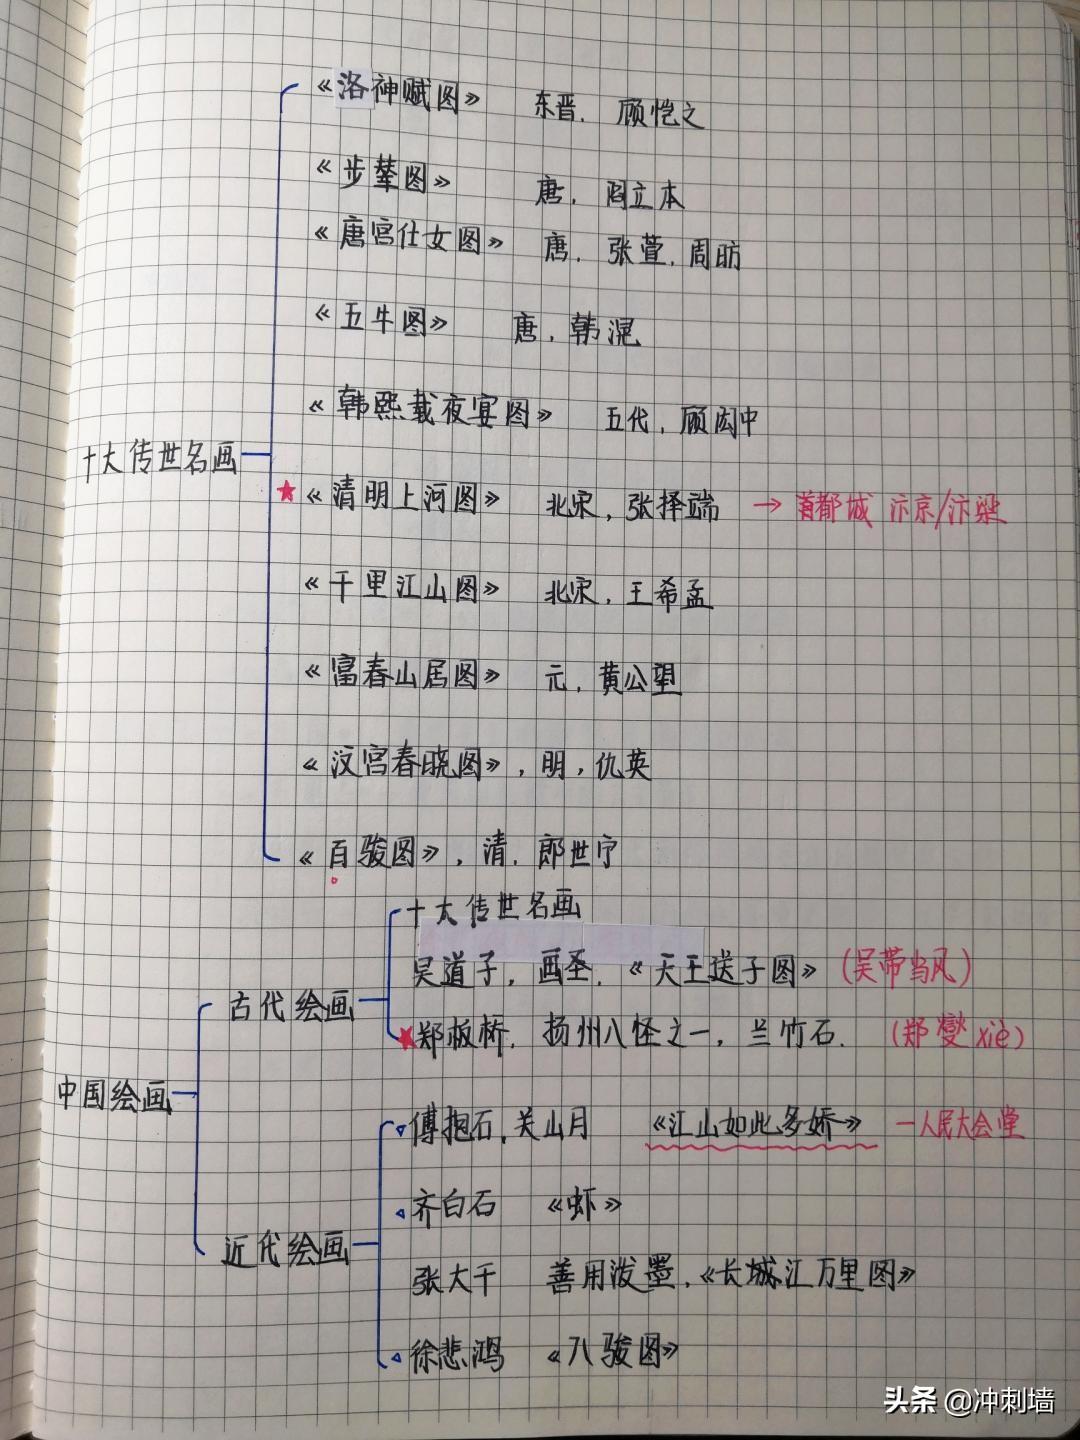 《洛神赋图》 东晋. 顾恺之
《步辇图》 唐. 阎立本
《唐宫仕女图》 唐. 张萱. 周昉
《五牛图》 唐. 韩滉
《韩熙载夜宴图》 五代. 顾闳中
十大传世名画
★《清明上河图》 北宋, 张择端 → 首都城 汴京/汴梁
《千里江山图》 北宋, 王希孟
《富春山居图》 元. 黄公望
《汉宫春晓图》, 明, 仇英
《百骏图》, 清. 郎世宁
十大传世名画
吴道子, 画圣. 《天王送子图》 (吴带当风)
古代绘画
★郑板桥. 扬州八怪之一, 兰竹石. (郑燮xiè)
中国绘画
傅抱石, 关山月 《江山如此多娇》 —人民大会堂
齐白石 《虾》
近代绘画
张大千 善用泼墨.《长城江万里图》
徐悲鸿 《八骏图》
头条 @冲刺墙